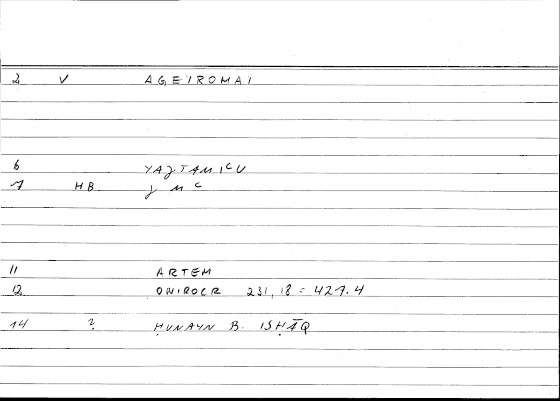 2 V AGEIROMAI
6 YAǦTAMIʿU
7 HB. ǧ M ʿ
11 ARTEM
12 ONIROCR 231,18 = 427.4
14 ? ḤUNAYN B. ISḤĀQ